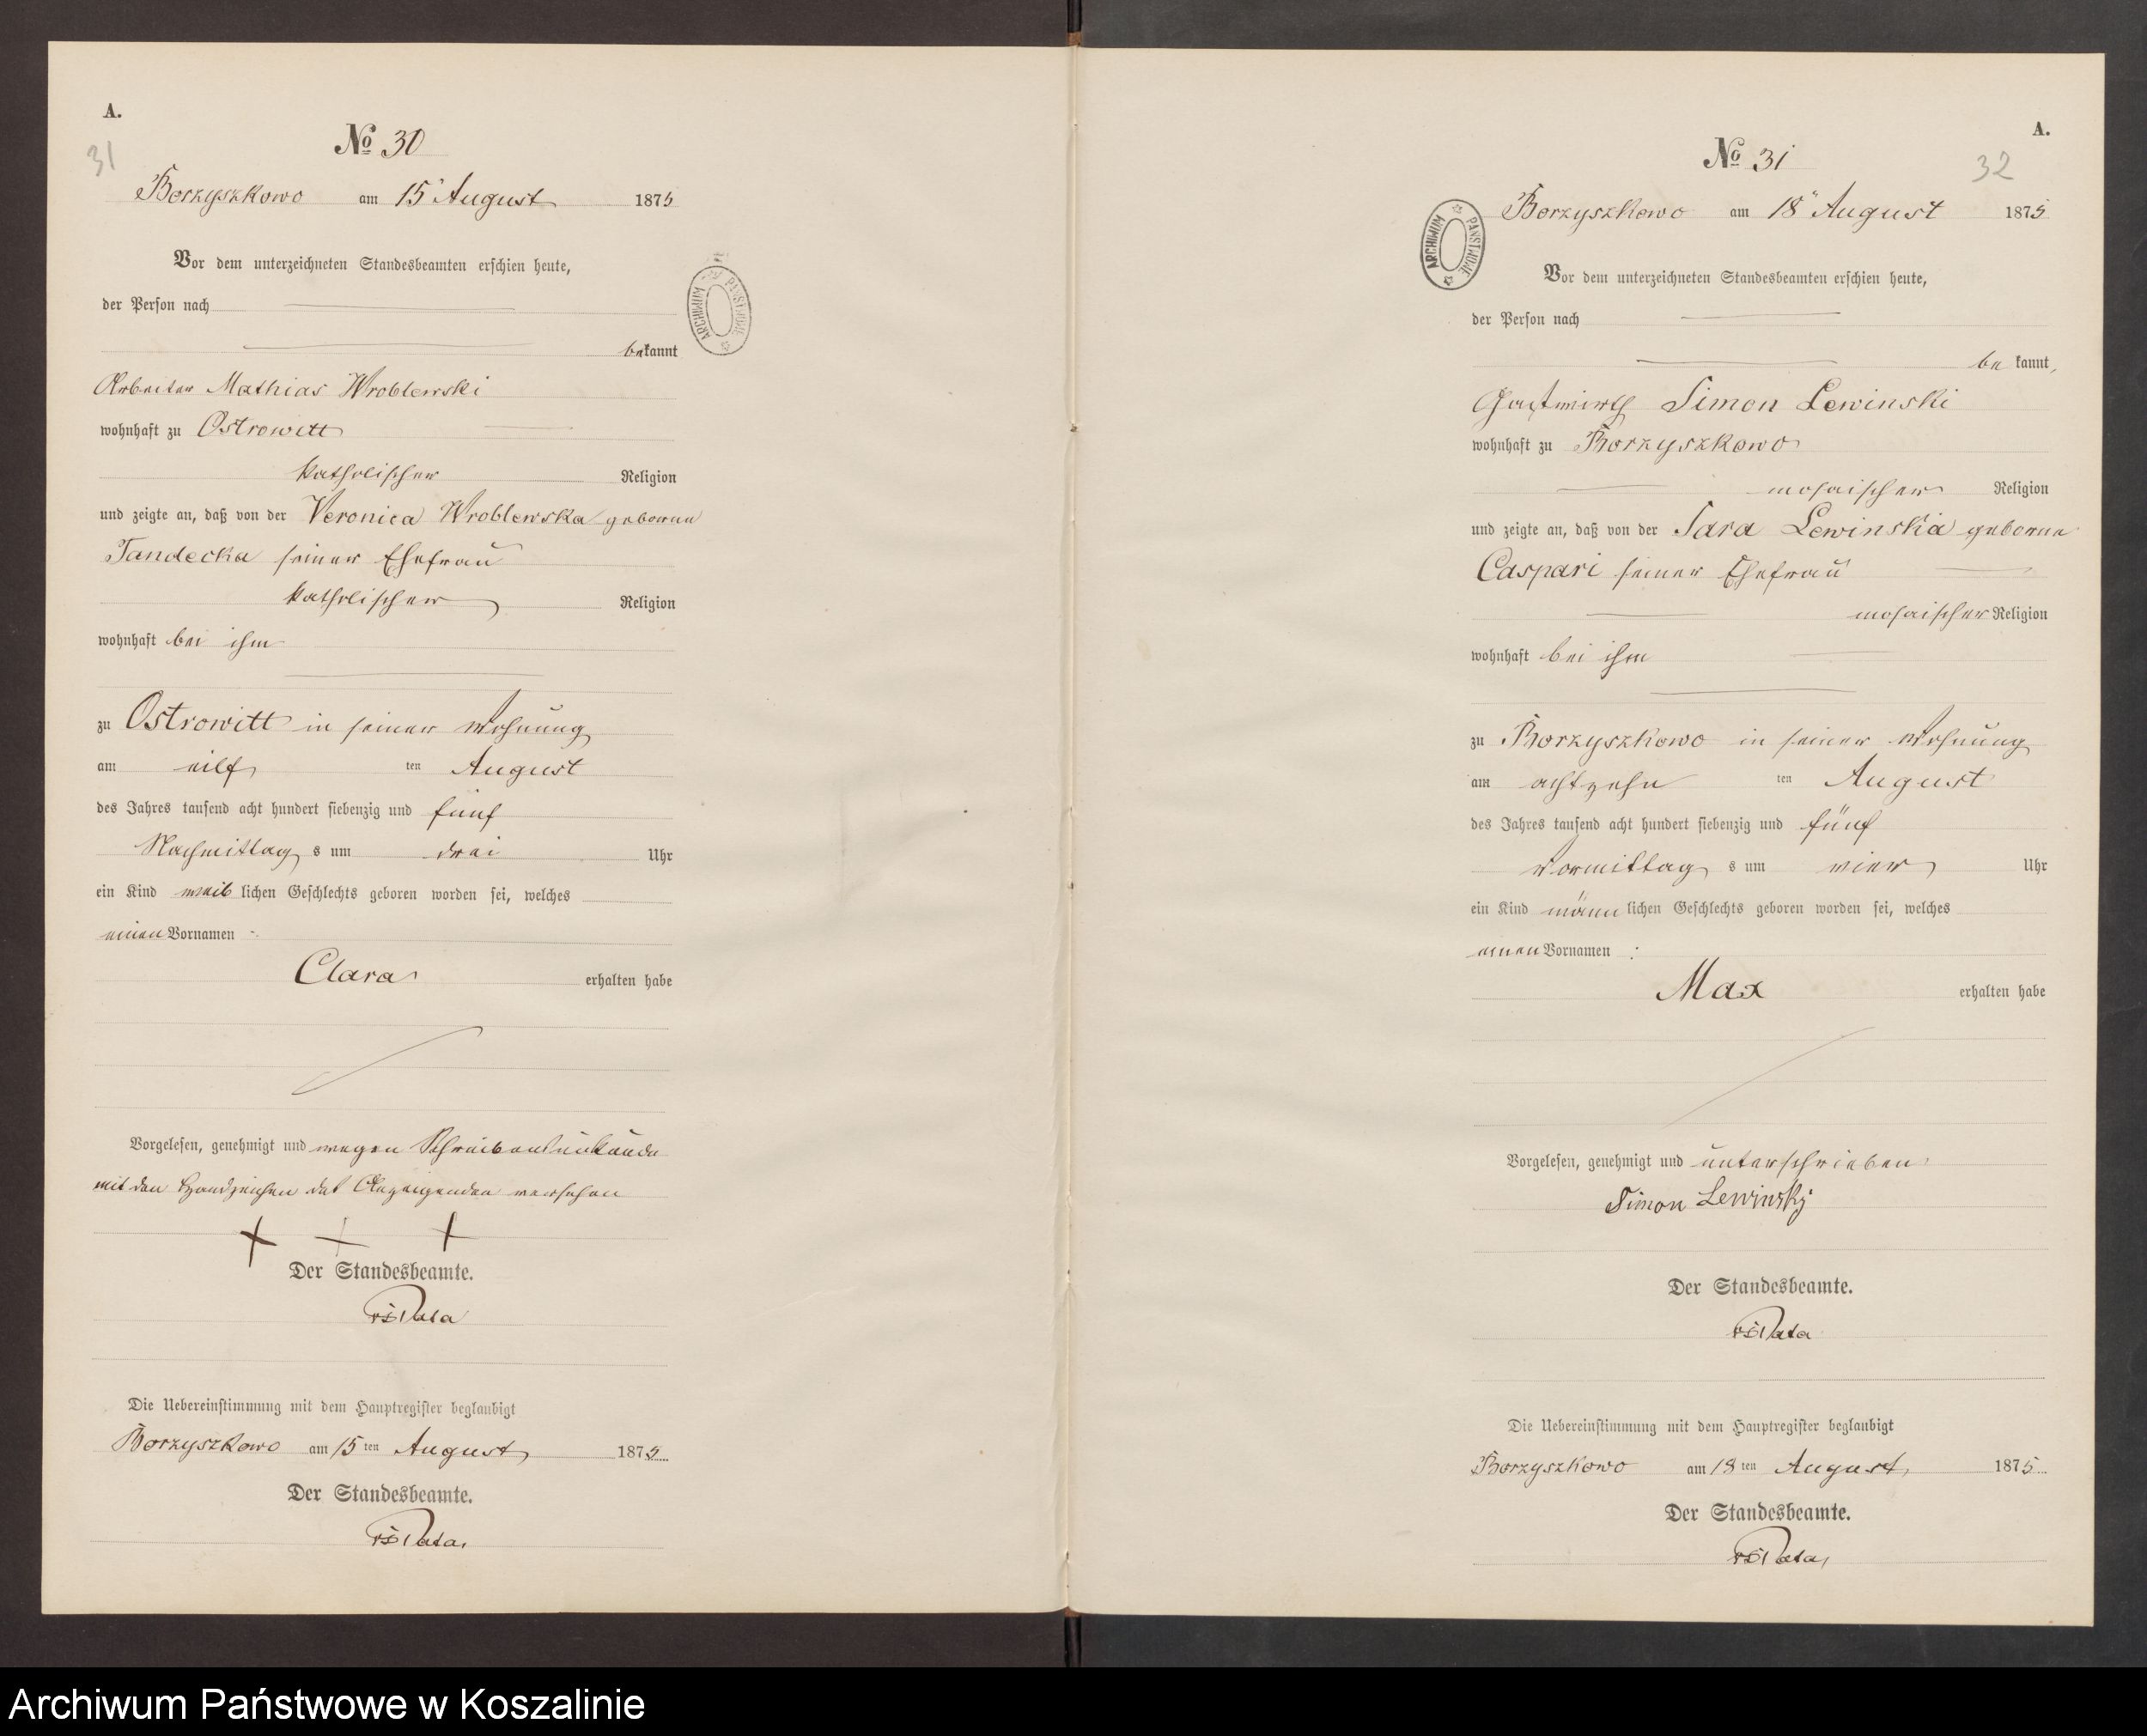 A.
31
No 30
Borzyszkowo am 15 August 1875
Vor dem unterzeichneten Standesbeamten erschien heute,
der Person nach
bekannt
Arbeiter Mathias Wroblewski
wohnhaft zu Ostrowitt
katholischer Religion
und zeigte an, daß von der Veronica Wroblewska geborene
Tandecka seiner Ehefrau
katholischer Religion
wohnhaft bei ihm
zu Ostrowitt in seiner Wohnung
am eilf ten August
des Jahres tausend acht hundert siebenzig und fünf
Nachmittag s um drei Uhr
ein Kind weib lichen Geschlechts geboren worden sei, welches
einen Vornamen
Clara erhalten habe
Vorgelesen, genehmigt und wegen Schreibensunkunde
mit den Handzeichen des Anzeigenden versehen
+ + +
Der Standesbeamte.
Die Uebereinstimmung mit dem Hauptregister beglaubigt
Borzyszkowo am 15 ten August 1875
Der Standesbeamte.
A.
No 31
32
Borzyszkowo am 18 August 1875
ARCHIWUM PAŃSTWOWE
Vor dem unterzeichneten Standesbeamten erschien heute,
der Person nach
be kannt,
Gastwirth Simon Lewinski
wohnhaft zu Borzyszkowo
mosaischer Religion
und zeigte an, daß von der Sara Lewinska geborene
Caspari seiner Ehefrau
mosaischer Religion
wohnhaft bei ihm
zu Borzyszkowo in seiner Wohnung
am achtzehn ten August
des Jahres tausend acht hundert siebenzig und fünf
Vormittag s um vier Uhr
ein Kind männ lichen Geschlechts geboren worden sei, welches
einen Vornamen :
Max erhalten habe
Vorgelesen, genehmigt und unterschrieben
Simon Lewinsky
Der Standesbeamte.
Die Uebereinstimmung mit dem Hauptregister beglaubigt
Borzyszkowo am 18 ten August 1875
Der Standesbeamte.
ARCHIWUM PAŃSTWOWE
Archiwum Państwowe w Koszalinie